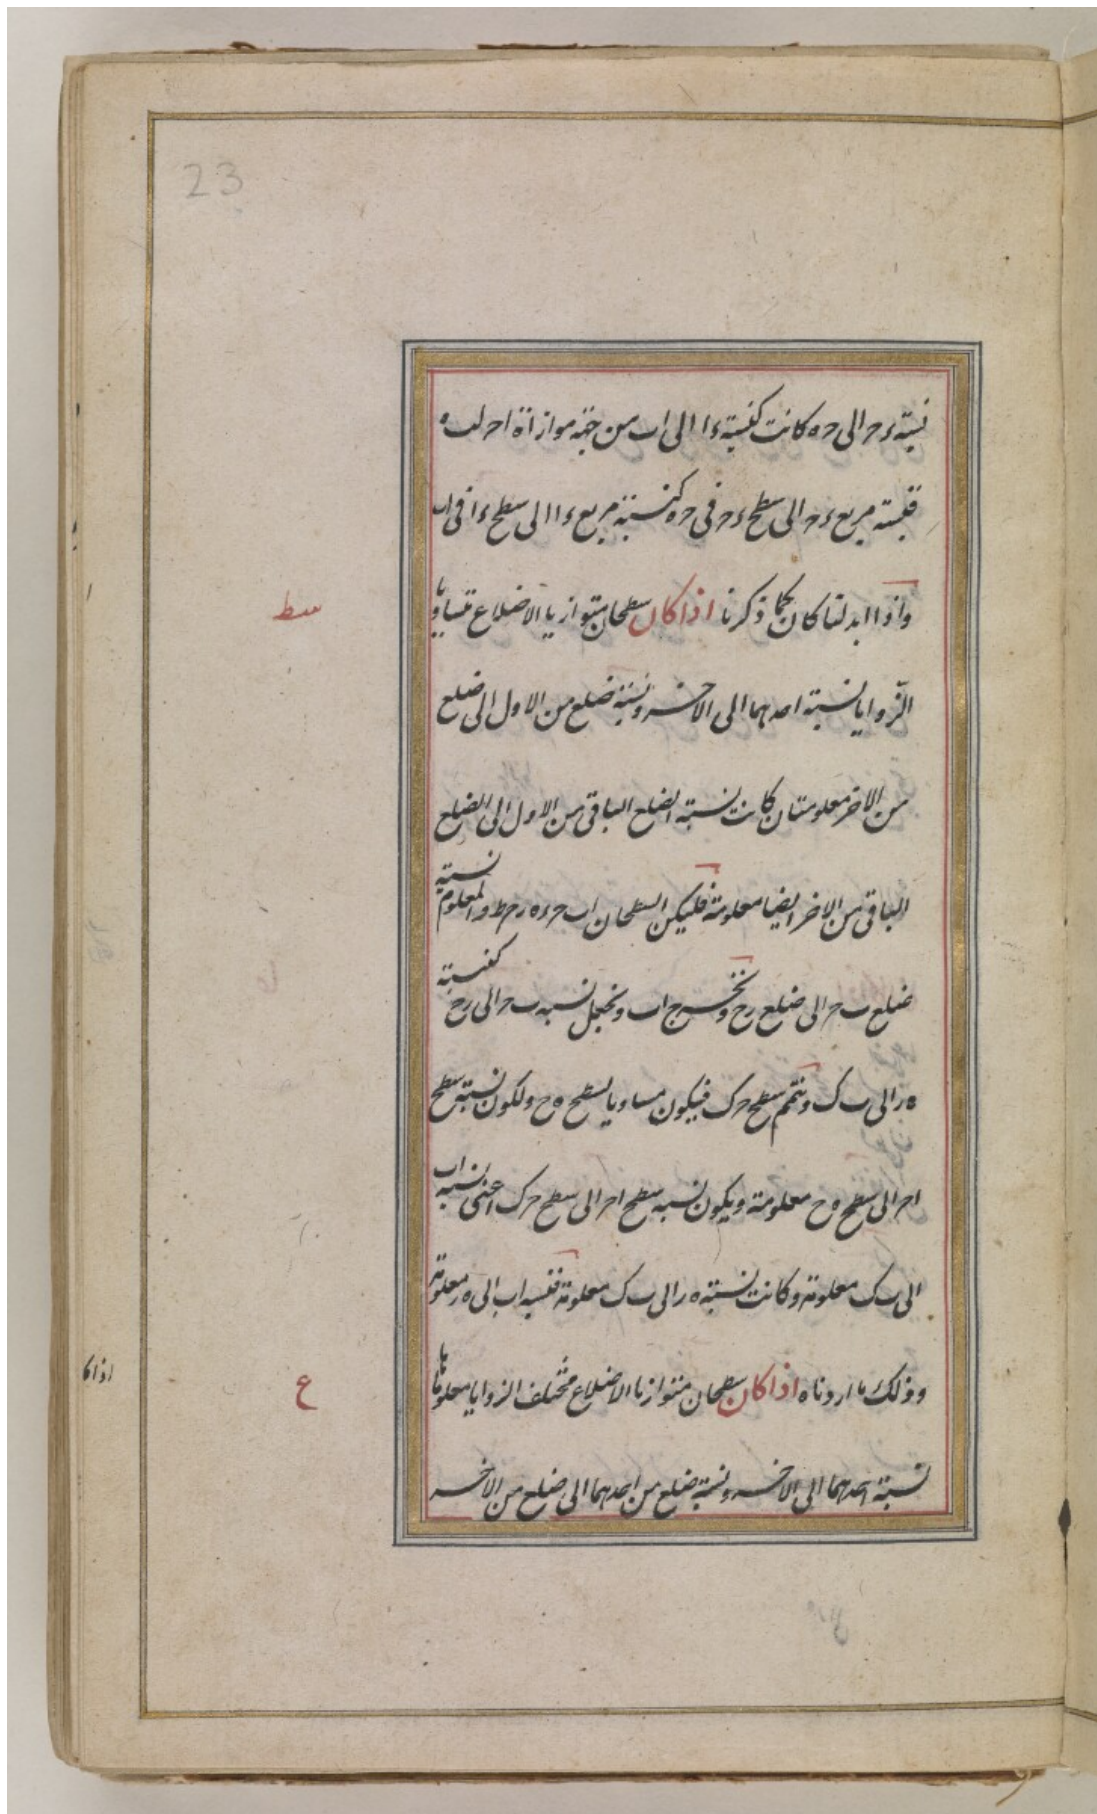 23
نسبة ء حر الى حره كانت كنسبة ءا الى اب من جهة موازاة احر لب ه
فنسبة مربع ء حر الى سطح ء حر فى حره كنسبة مربع ءا الى سطح ءا فى اب
واذا ابدلنا كان كما ذكرنا اذا كان سطحان متوازيا الاضلاع متساويا
سط
الزوايا نسبة احدهما الى الاخر ونسبة ضلع من الاول الى ضلع
من الاخر معلومتان كانت نسبة الضلع الباقى من الاول الى الضلع
الباقى من الاخر ايضا معلومة فليكن السطحان اب حرء ه رحط والمعلوم نسبة
ضلع ب حر الى ضلع رح ونخرج اب ونجعل نسبه ب حر الى رح كنسبة
ه ر الى ب ك ونتمم سطح حر ك فيكون مساويا لسطح ه ح ولكون نسبة سطح
احر الى سطح ه ح معلومة ويكون نسبه سطح احر الى سطح حر ك اعنى نسبه اب
الى ب ك معلومة وكانت نسبة ه ر الى ب ك معلومة فنسبه اب الى ه ر معلومة
وذلك ما اردناه اذا كان سطحان متوازيا الاضلاع مختلف الزوايا معلوما
ع
اذا كا
نسبة احدهما الى الاخر ونسبة ضلع من احدهما الى ضلع من الاخر